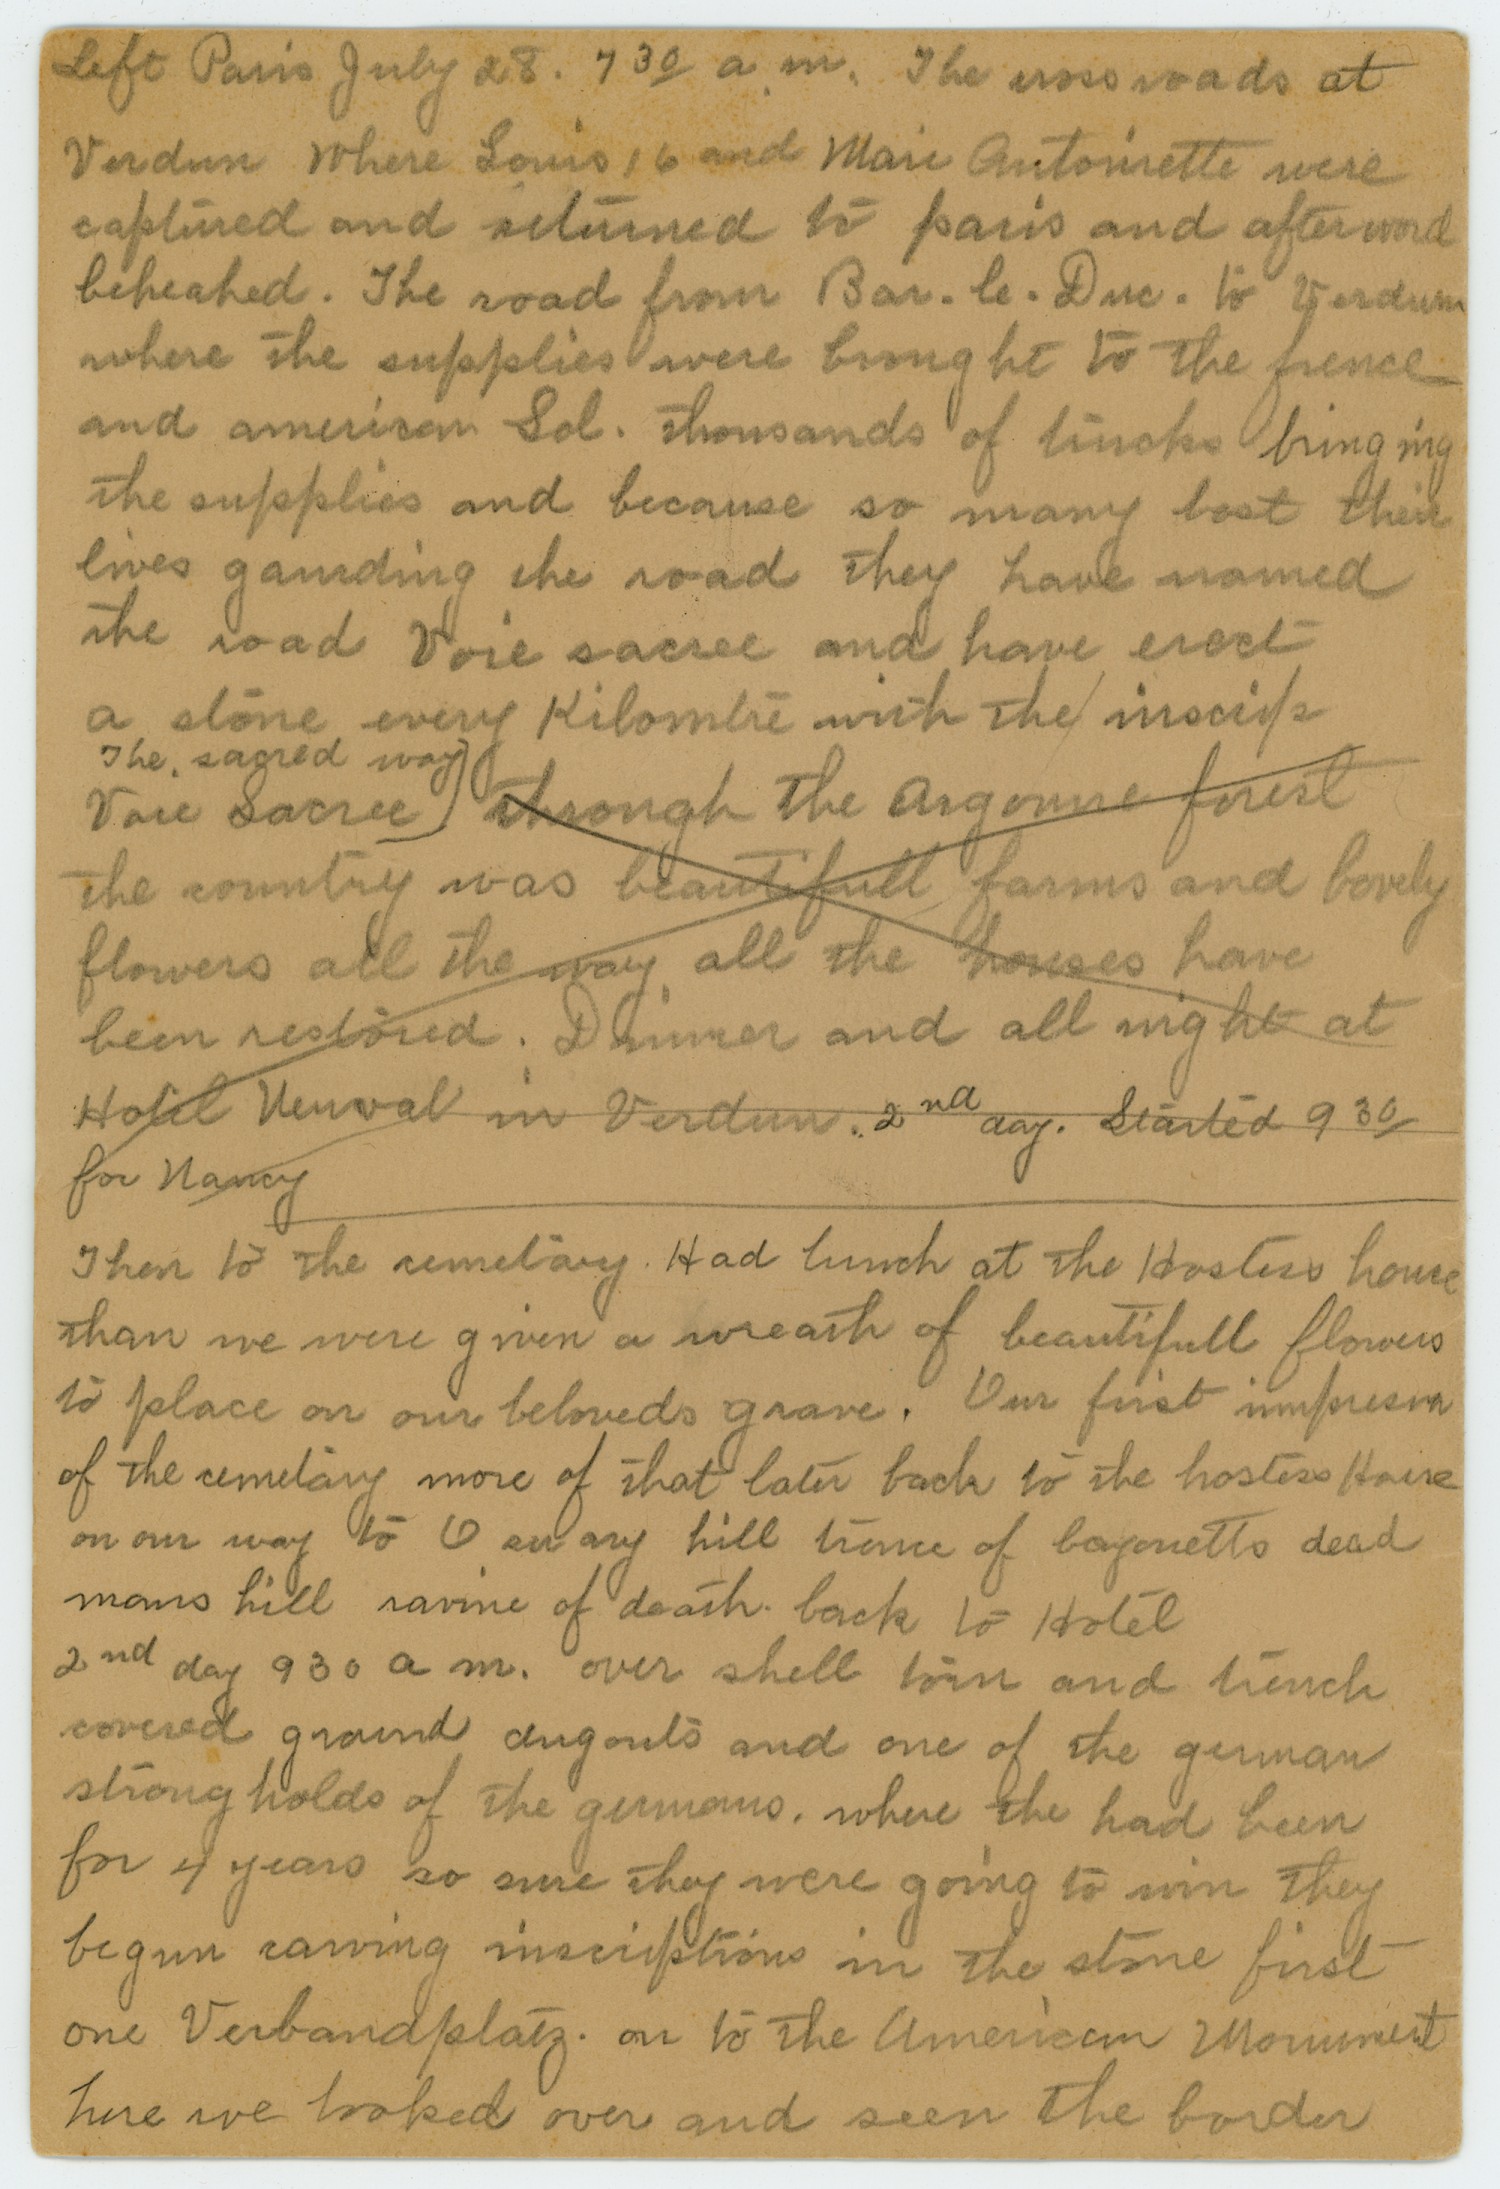 Left Paris July 28. 7 30 a.m. The cross roads at
Verdun Where Louis 16 and Marie Antoinette were
captured and returned to paris and afterword
beheahed. The road from Bar. le. Duc. to Verdum
where the supplies were brought to the frence
and american Sol. thousands of trucks bringing
the supplies and because so many lost their
lives gaurding the road they have named
the road Voie sacree and have erect
a stone every Kilomtre with the inscrip
The sacred way)
Voie Sacree) through the Argonne forest
the country was beautifull farms and lovely
flowers all the way all the houses have
been restored. Dinner and all night at
Hotel in Verdun. 2nd day. Started 9 30
for Nancy
Then to the cemetary. Had lunch at the Hostess house
than we were given a wreath of beautifull flowers
to place on our beloveds grave. Our first impresion
of the cemetary more of that later back to the hostess House
on our way to hill trence of bayonetts dead
mans hill ravine of death. back to Hotel
2nd day 9 30 a m. over shell torn and trench
covered ground dugouts and one of the german
strong holds of the germans. where the had been
for 4 years so sure they were going to win they
begun carving inscriptions in the stone first
one Verbandplatz. on to the American Monument
here we looked over and seen the border